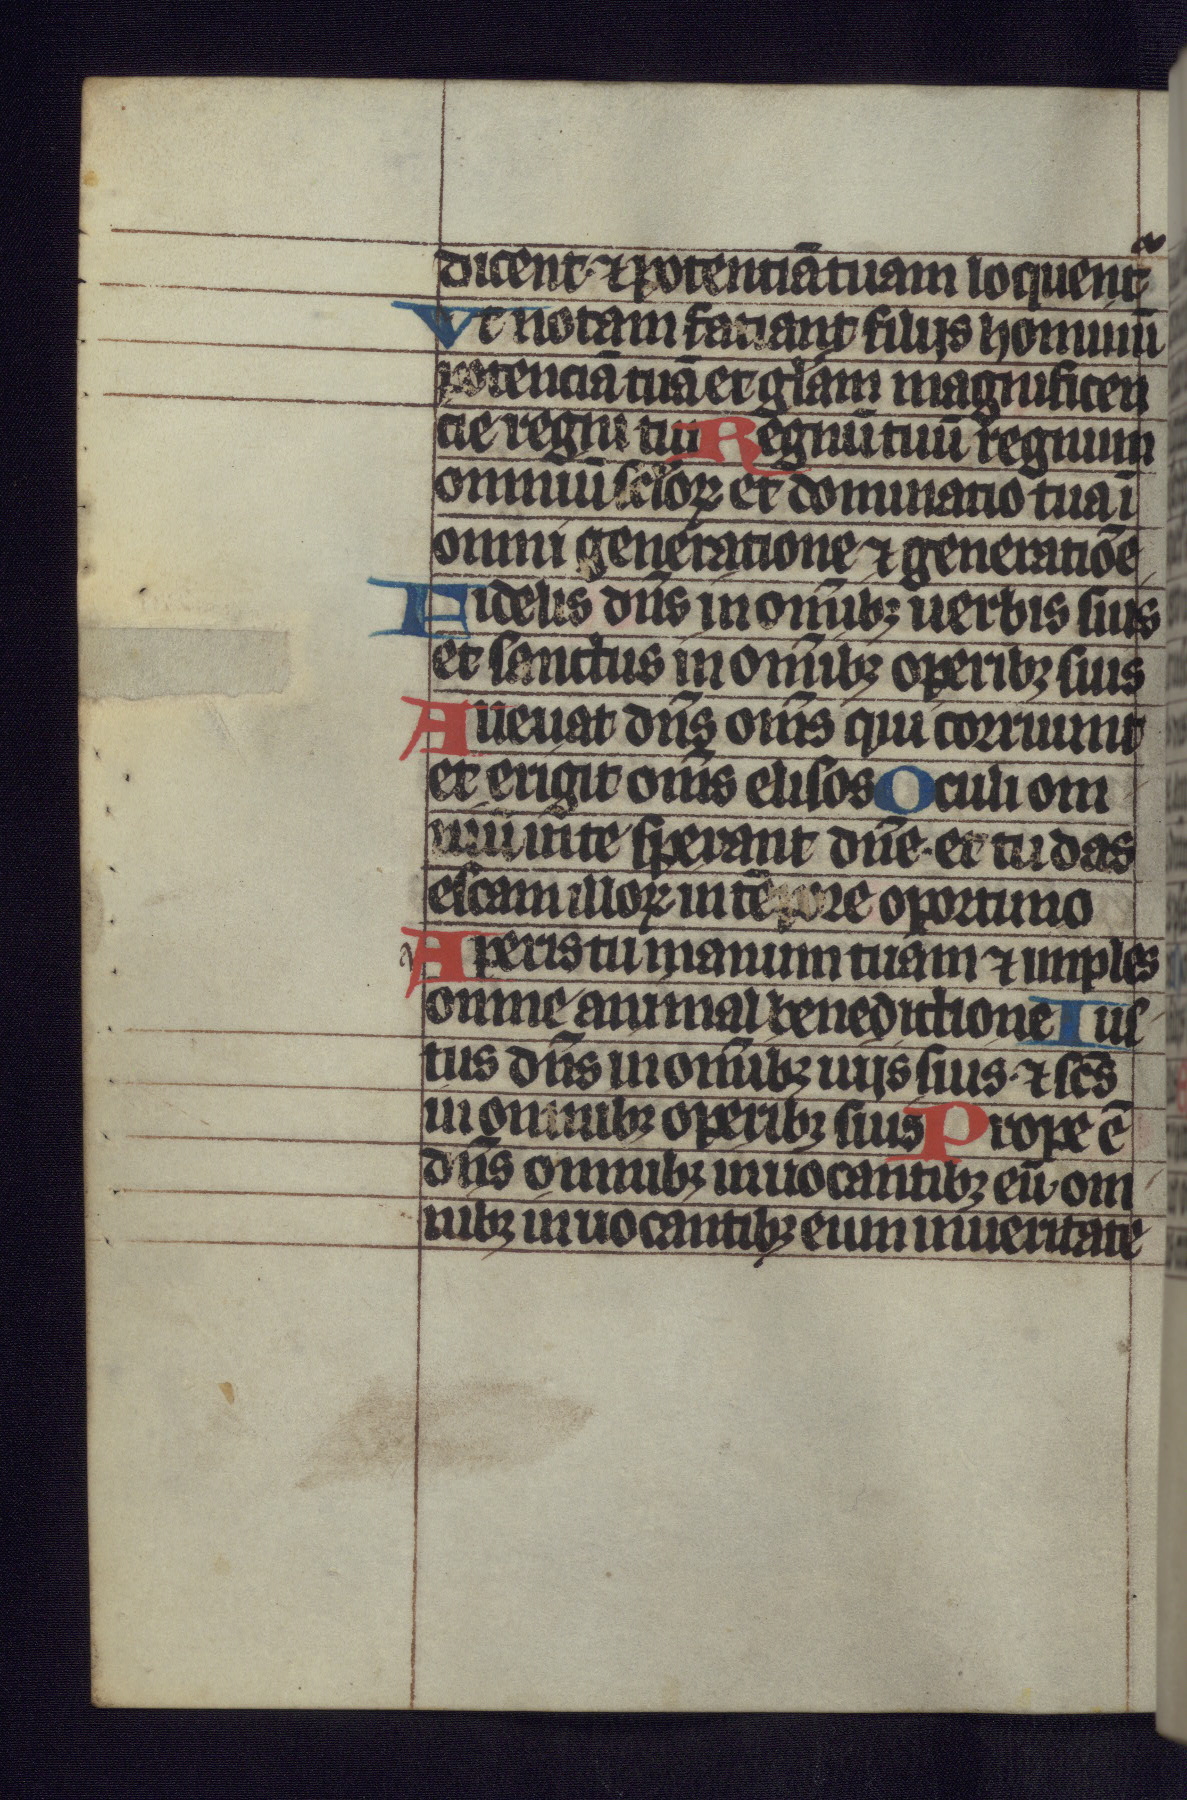 dicent· ⁊ potentiā tuam loquent᷑
Vt notam faciant filijs hominū
potenciā tuā et gl̄iam magnificen
cie regni tui Regnū tuū regnum
omniū sc̄loꝝ et dominatio tua ī
omni generatione ⁊ generatiōe
Fidelis dn̄s in om̄ibꝫ uerbis suis
et sanctus in om̄ibꝫ operibꝫ suis
Alleuat dn̄s om̄s qui corruunt
et erigit om̄s elisos Oculi om
niū in te sperant dn̄e· et tu das
escam illoꝝ in tēpore oportuno
Aperis tu manum tuam ⁊ imples
omne animal benedictione Ius
tus dn̄s in om̄ibꝫ uijs suis· ⁊ sc̄s
in omnibꝫ operibꝫ suis Prope ē
dn̄s omnibꝫ inuocantibꝫ eū· om
nibꝫ inuocantibꝫ eum in ueritate